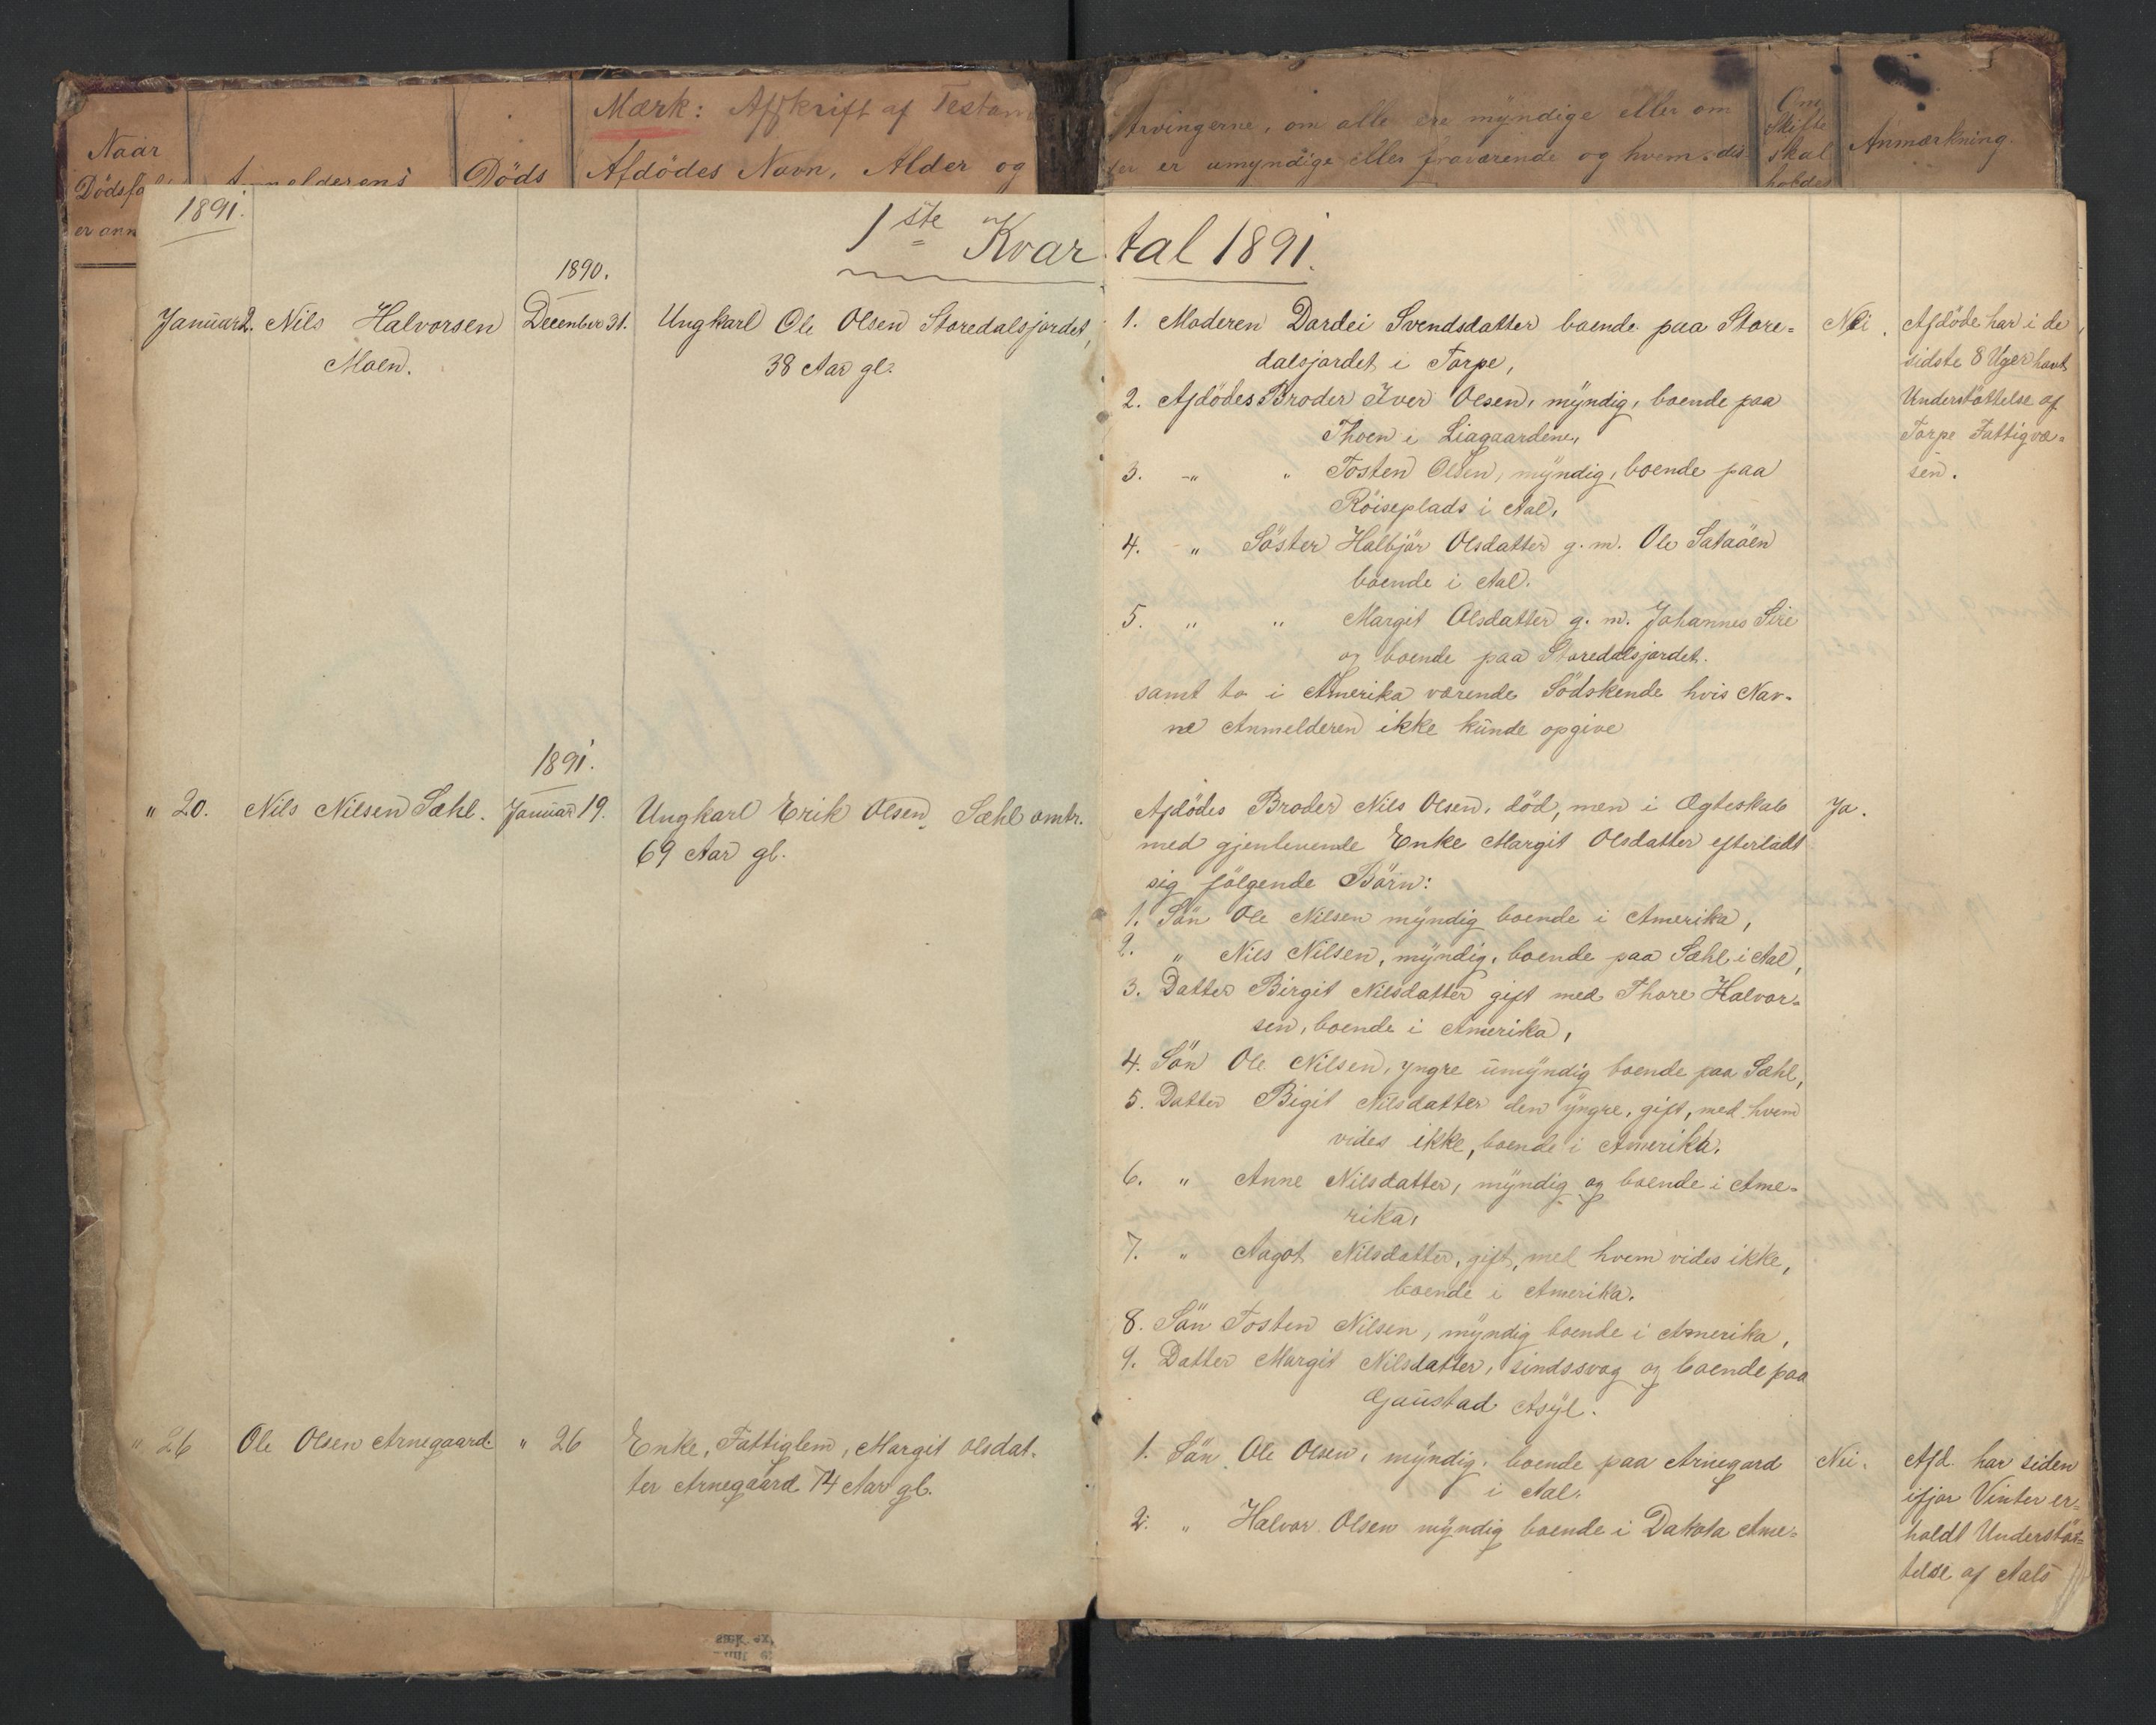 Naar
Dödsfa
er anm
Anmelderens
Döds
Mærk: Afskrift af Testam
Afdödes Navn, Alder og
Arvingerne, om alle ere myndige eller om
er umyndige eller fraværende og hvem des
Om
Skifte
skal
holdes
Anmærkning.
1891.
1ste Kvartal 1891.
1890.
Januar 2. Nils Halvorsen
Moen.
December 31.
Ungkarl Ole Olsen Storedalsjordet,
38 Aar gl.
1. Moderen Dardei Svendsdatter boende paa Store-
dalsjordet i Torpe,
2. Afdödes Broder Iver Olsen, myndig, boende paa
Thoen i Liagaardene,
3. -" " Tosten Olsen, myndig, boende paa
Röiseplads i Aal,
4. " Söster Halbjör Olsdatter g. m. Ole Sataöen
boende i Aal.
5. " " Margit Olsdatter g. m. Johannes Sire
og boende paa Storedalsjordet.
samt to i Amerika værende Södskende hvis Nav-
ne Anmelderen ikke kunde opgive
Nei.
Afdöde har i de
sidste 8 Uger havt
Understöttelse af
Torpe Fattigvæ-
sen.
1891.
" 20. Nils Nilsen Sæhl.
Januar 19.
Ungkarl Erik Olsen Sæhl omtr.
69 Aar gl.
Afdödes Broder Nils Olsen, död, men i Ægteskab
med gjenlevende Enke Margit Olsdatter efterladt
sig fölgende Börn:
1. Sön Ole Nilsen myndig boende i Amerika,
2. " Nils Nilsen, myndig, boende paa Sæhl i Aal,
3. Datter Birgit Nilsdatter gift med Thore Halvor-
sen, boende i Amerika,
4. Sön Ole Nilsen, yngre umyndig boende paa Sæhl,
5. Datter Bigit Nilsdatter den yngre, gift, med hvem
vides ikke, boende i Amerika.
6. " Anne Nilsdatter, myndig og boende i Ame-
rika,
7. " Aagot Nilsdatter, gift, med hvem vides ikke,
boende i Amerika.
8. Sön Tosten Nilsen, myndig boende i Amerika,
9. Datter Margit Nilsdatter, sindssvag og boende paa
Gaustad Asyl.
Ja.
" 26 Ole Olsen Arnegaard.
" 26
Enke, Fattiglem, Margit Olsdat-
ter Arnegaard 74 Aar gl.
1. Sön Ole Olsen, myndig, boende paa Arnegard
i Aal.
2. " Halvor Olsen myndig boende i Dakota Ame-
Nei.
Afd. har siden
ifjor Vinter er-
holdt Understöt-
telse af Aals